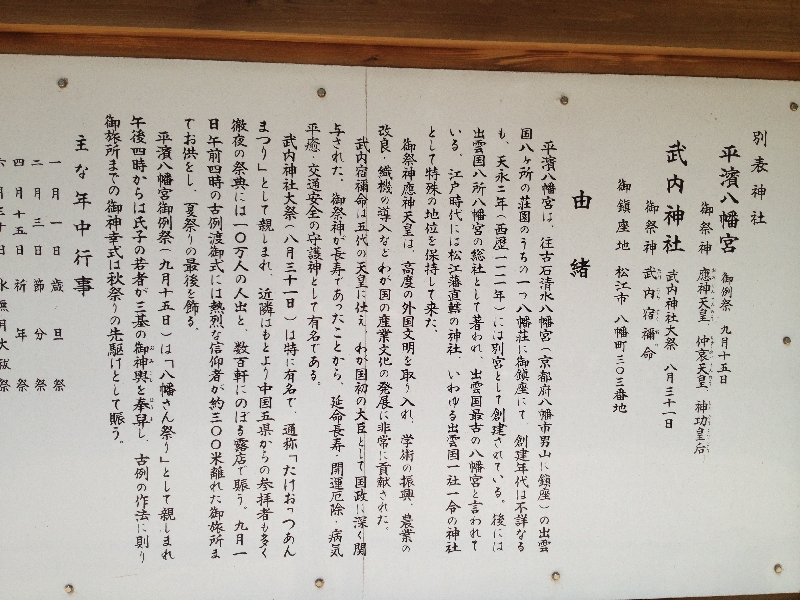 別表神社
平濱八幡宮 御例祭 九月十五日
御祭神 應神天皇 仲哀天皇 神功皇后
武内神社 武内神社大祭 八月三十一日
御祭神 武内宿禰命
御鎮座地 松江市八幡町三〇三番地
由緒
平濱八幡宮は、往古石清水八幡宮(京都府八幡市男山に鎮座)の出雲
国八ヶ所の荘園のうちの一つ八幡荘に御鎮座にて、創建年代は不詳なる
も、天永二年(西歴一一一一年)には別宮として創建されている。後には
出雲国八所八幡宮の総社として著われ、出雲国最古の八幡宮と言われて
いる。江戸時代には松江藩直轄の神社、いわゆる出雲国一社一令の神社
として特殊の地位を保持して来た。
御祭神應神天皇は、高度の外国文明を取り入れ、学術の振興、農業の
改良・織機の導入などわが国の産業文化の発展に非常に貢献された。
武内宿禰命は五代の天皇に仕え、わが国初の大臣として国政に深く関
与された、御祭神が長寿であったことから、延命長寿・開運厄除・病気
平癒・交通安全の守護神として有名である。
武内神社大祭(八月三十一日)は特に有名で、通称「たけおっつあん
まつり」として親しまれ、近隣はもとより中国五県からの参拝者も多く
徹夜の祭典には一〇万人の人出と、数百軒にのぼる露店で賑う。九月一
日午前四時の古例渡御式には熱烈な信仰者が約三〇〇米離れた御旅所ま
でお供をし、夏祭りの最後を飾る。
平濱八幡宮御例祭(九月十五日)は「八幡さん祭り」として親しまれ
午後四時からは氏子の若者が三基の御神輿を奉舁し、古例の作法に則り
御旅所までの御神幸式は秋祭りの先駆けとして賑う。
主な年中行事
一月一日 歳旦祭
二月三日 節分祭
四月十五日 祈年祭
六月三十日 水無月大祓祭